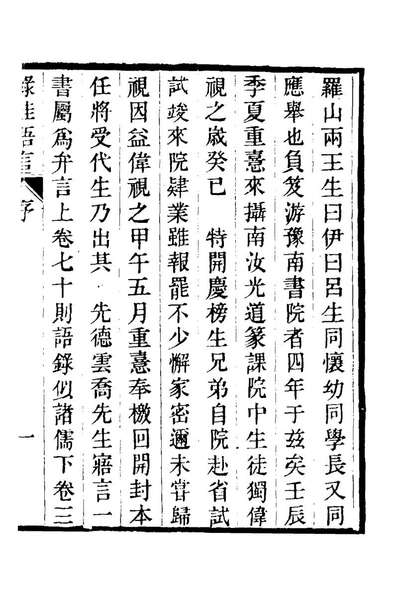 羅山兩王生曰伊曰呂生同懷幼同學長又同
應舉也負笈游豫南書院者四年于兹矣壬辰
季夏重憙來攝南汝光道篆課院中生徒獨偉
視之歲癸巳　特開慶榜生兄弟自院赴省試
試竣來院肄業雖報罷不少懈家密邇未嘗歸
視因益偉視之甲午五月重憙奉檄回開封本
任將受代生乃出其　先德雲喬先生寤言一
書屬爲弁言上卷七十則語錄似諸儒下卷三
語言　序　一